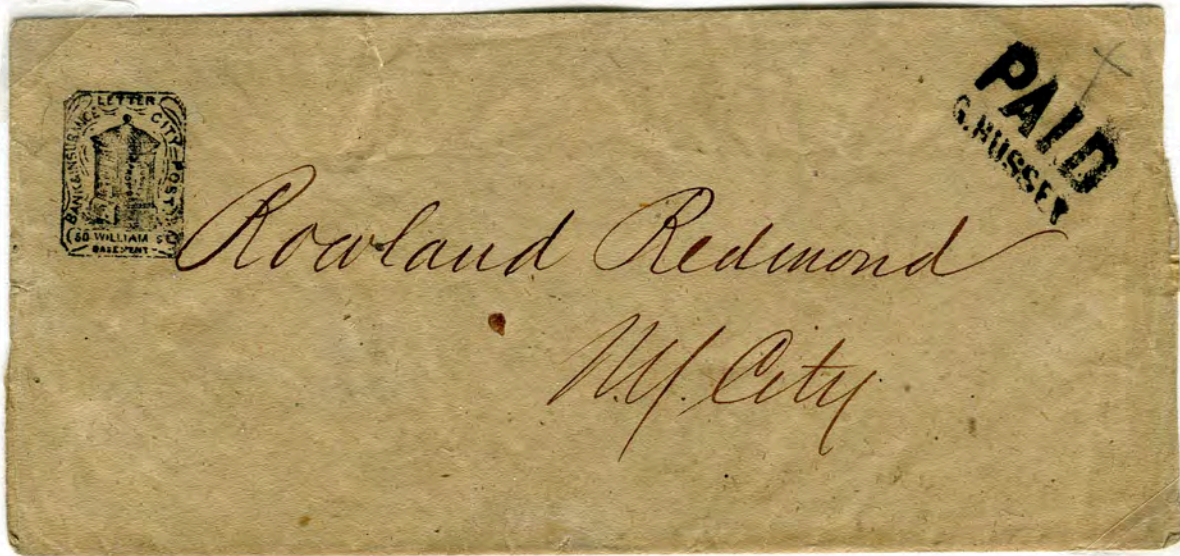 LETTER
BANK & INSURANCE
CITY POST
50 WILLIAM ST.
BASEMENT
PAID
G. HUSSEY
Rowland Redmond
N.Y. City